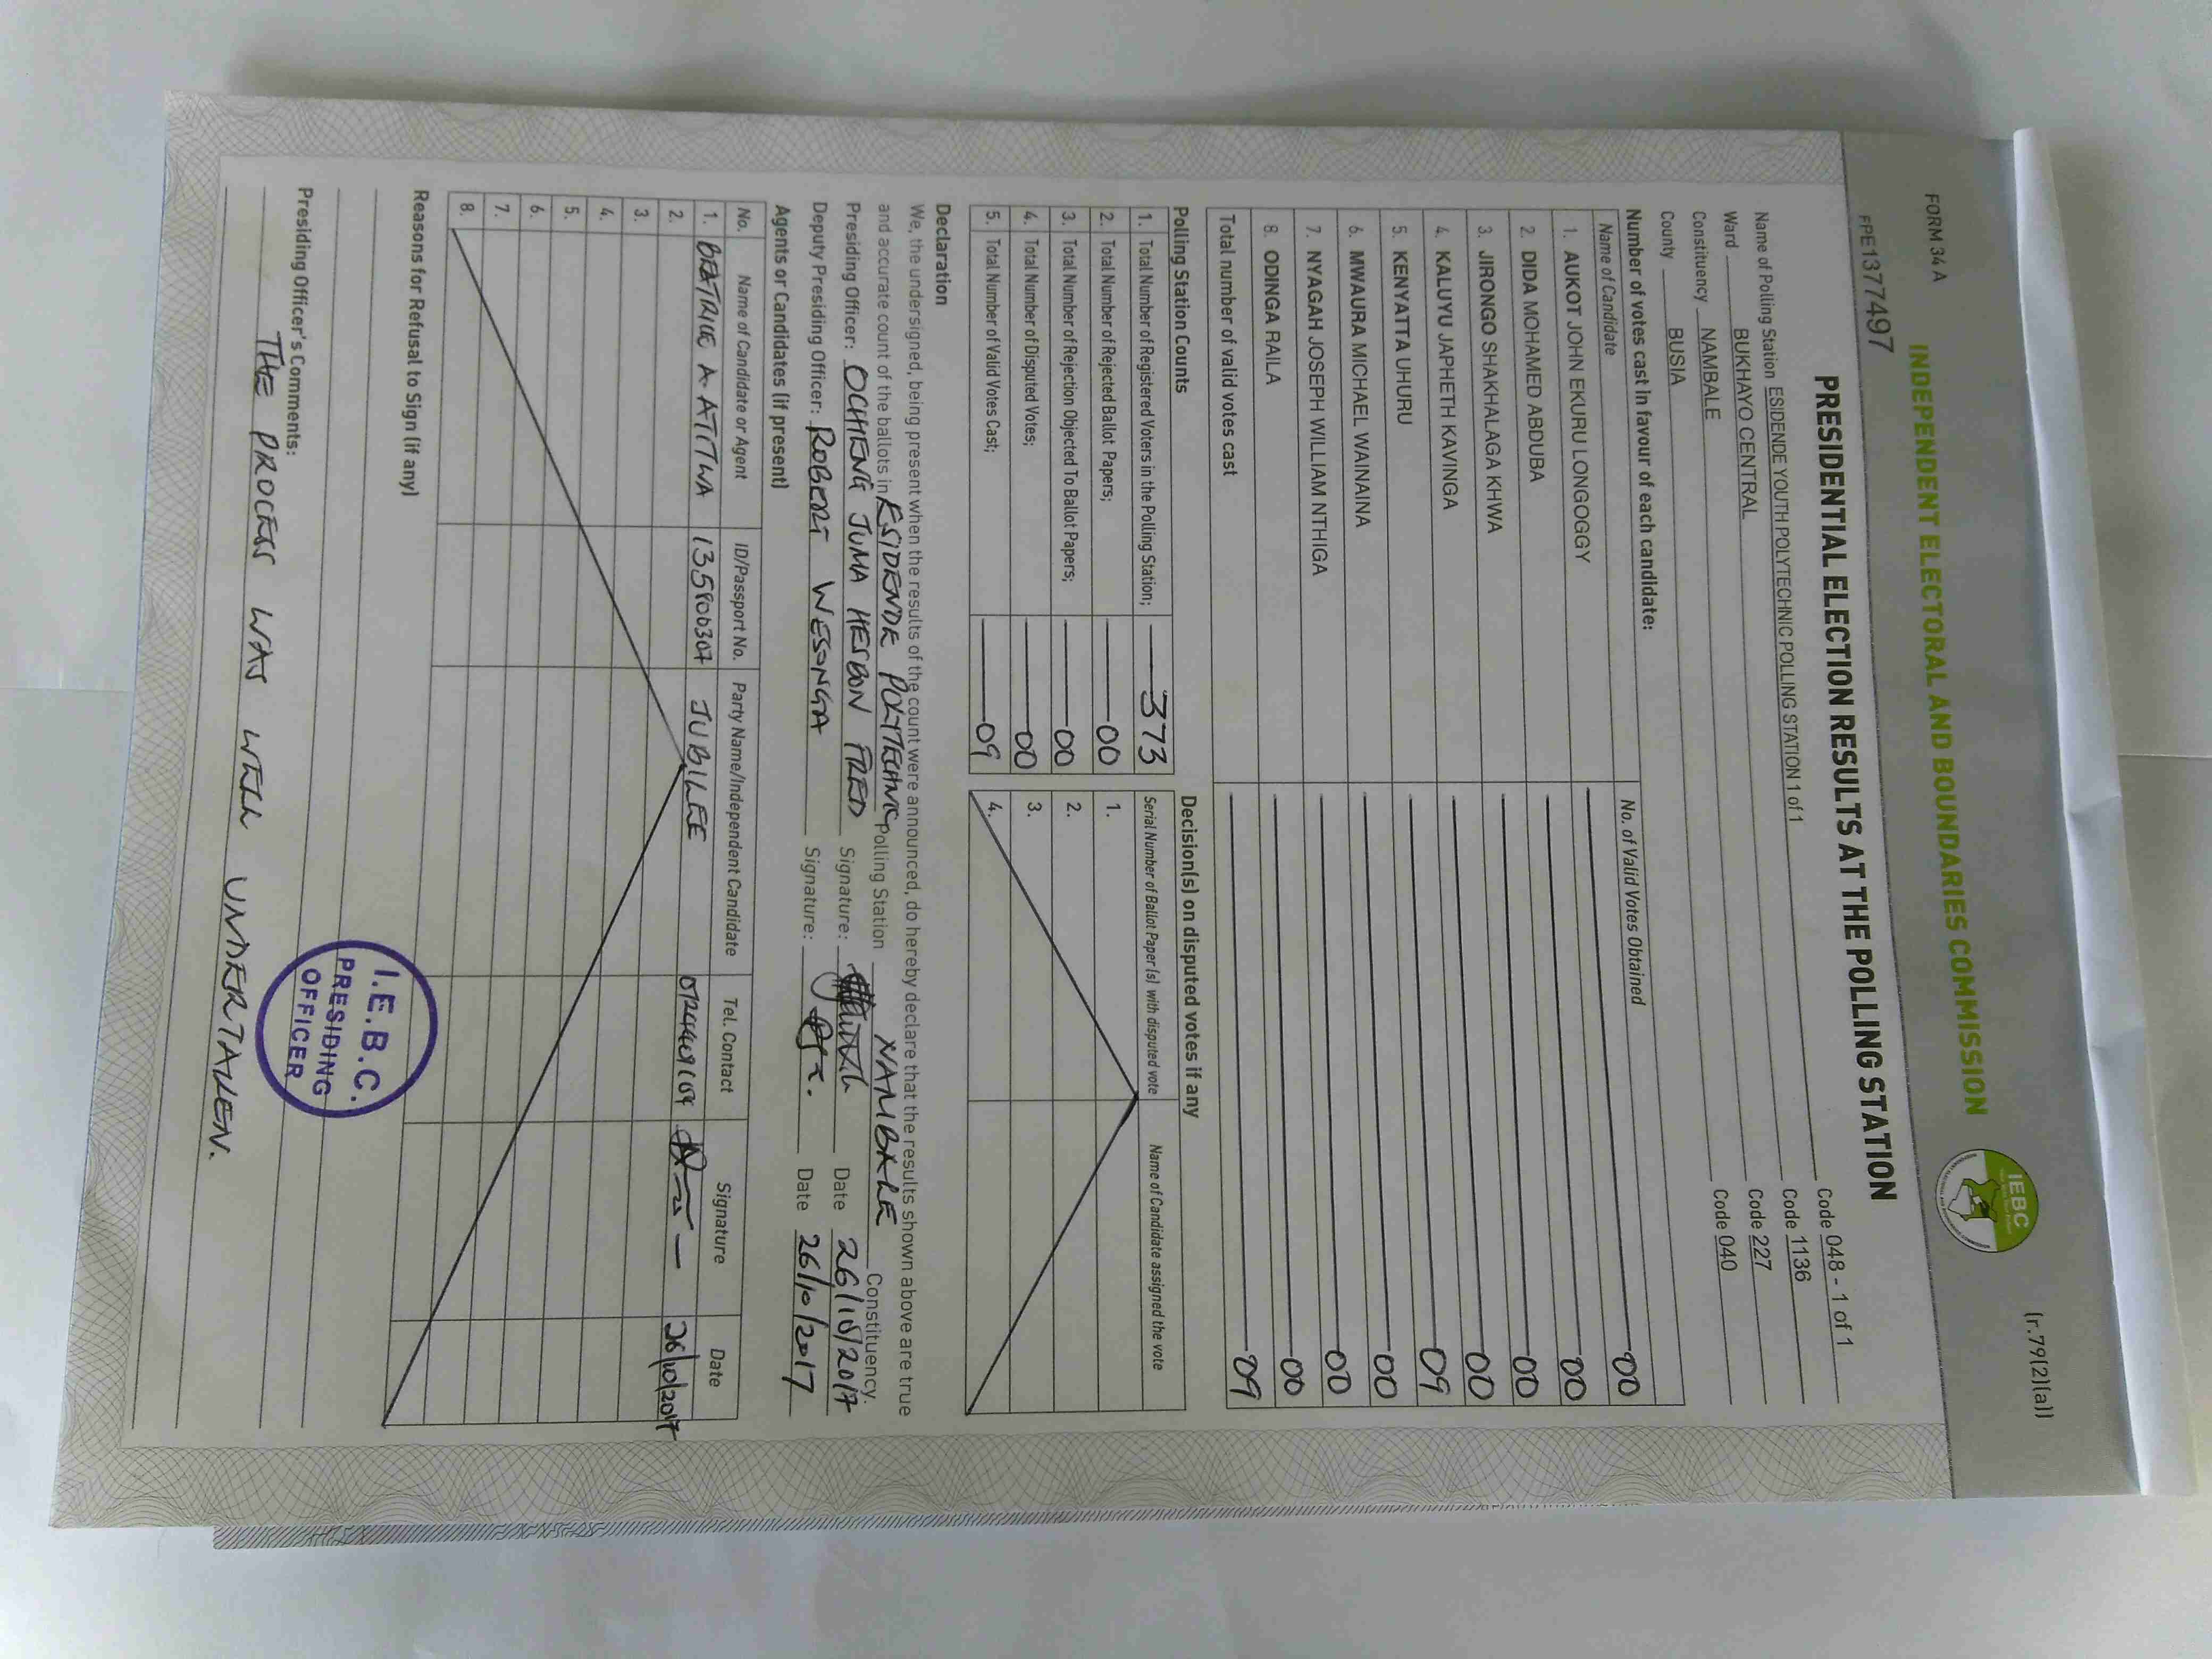 FORM 34 A
(r.79(2)(a))
INDEPENDENT ELECTORAL AND BOUNDARIES COMMISSION
IEBC
FPE1377497
PRESIDENTIAL ELECTION RESULTS AT THE POLLING STATION
Name of Polling Station ESIDENDE YOUTH POLYTECHNIC POLLING STATION 1 of 1 Code 048 - 1 of 1
Ward BUKHAYO CENTRAL Code 1136
Constituency NAMBALE Code 227
County BUSIA Code 040
Number of votes cast in favour of each candidate:
Name of Candidate No. of Valid Votes Obtained
1. AUKOT JOHN EKURU LONGOGGY 00
2. DIDA MOHAMED ABDUBA 00
3. JIRONGO SHAKHALAGA KHWA 00
4. KALUYU JAPHETH KAVINGA 00
5. KENYATTA UHURU 09
6. MWAURA MICHAEL WAINAINA 00
7. NYAGAH JOSEPH WILLIAM NTHIGA 00
8. ODINGA RAILA 00
Total number of valid votes cast 09
Polling Station Counts
1. Total Number of Registered Voters in the Polling Station; 373
2. Total Number of Rejected Ballot Papers; 00
3. Total Number of Rejection Objected To Ballot Papers; 00
4. Total Number of Disputed Votes; 00
5. Total Number of Valid Votes Cast; 09
Decision(s) on disputed votes if any
Serial Number of Ballot Paper (s) with disputed vote Name of Candidate assigned the vote
1.
2.
3.
4.
Declaration
We, the undersigned, being present when the results of the count were announced, do hereby declare that the results shown above are true
and accurate count of the ballots in ESIDENDE POLYTECHNIC Polling Station NAMBALE Constituency.
Presiding Officer: OCHIENG JUMA HESBON FRED Signature: Date 26/10/2017
Deputy Presiding Officer: ROBERT WESONGA Signature: Date 26/10/2017
Agents or Candidates (if present)
No. Name of Candidate or Agent ID/Passport No. Party Name/Independent Candidate Tel. Contact Signature Date
1. BEATRICE A. ATITWA JUBILEE 26/10/2017
2.
3.
4.
5.
6.
7.
8.
Reasons for Refusal to Sign (if any)
Presiding Officer's Comments:
THE PROCESS WAS WELL UNDERTAKEN.
I.E.B.C.
PRESIDING
OFFICER